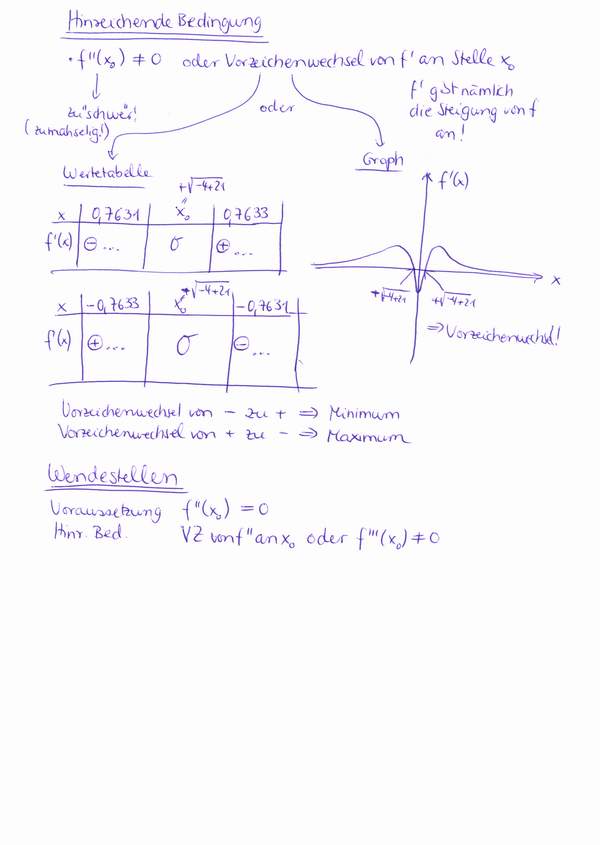 Hinreichende Bedingung
• f''(x₀) ≠ 0 oder Vorzeichenwechsel von f' an Stelle x₀
zu "schwer"!
(zu mühselig!)
oder
f' gibt nämlich
die Steigung von f
an!
Wertetabelle
Graph
+√-4+21
x 0,7631 x₀ 0,7633
f'(x) ⊖ ... 0 ⊕ ...
+√-4+21
x -0,7633 x₀ -0,7631
f'(x) ⊕ ... 0 ⊖ ...
f'(x)
x
+√-4+21 +√-4+21
⇒ Vorzeichenwechsel!
Vorzeichenwechsel von - zu + ⇒ Minimum
Vorzeichenwechsel von + zu - ⇒ Maximum
Wendestellen
Voraussetzung f''(x₀) = 0
Hinr. Bed. VZ von f'' an x₀ oder f'''(x₀) ≠ 0